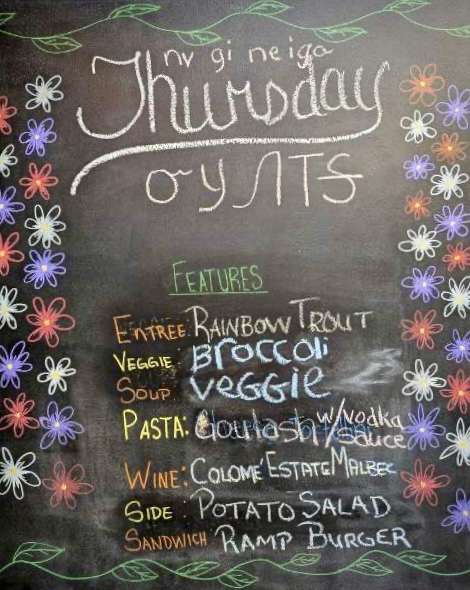 nv gi ne iga
Thursday
ᏅᎩᏁᎢᎦ
FEATURES
ENTREE: RAINBOW TROUT
VEGGIE: BROCCOLI
SOUP VEGGIE
PASTA: Goulash w/vodka
sauce
WINE: COLOME' ESTATE MALBEC
SIDE: POTATO SALAD
SANDWICH RAMP BURGER